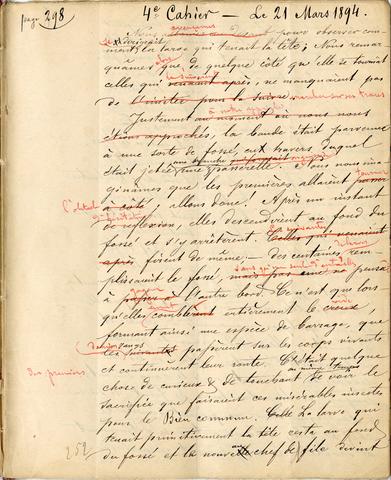 page 298
4e Cahier - Le 21 Mars 1894.
Nous pour observer com-
ment la larve qui tenait la tête; Nous remar
quâmes que de quelque côté qu'elle se tournait
celles qui suivaient après, ne manquaient pas
de l'imiter pour la suivre.
Justement au moment où nous nous
étions approchés, la bande était parvenue
à une sorte de fossé, au travers duquel
était jetée une passerelle. Nous nous ima
ginâmes que les premières allaient passer
à côté, allons donc! Après un instant
de réflexion, elles descendirent au fond du
fossé et s'y arrêtèrent. Celles qui venaient
après firent de même; - des centaines rem
plissaient le fossé, mais pas une ne passa
à l'autre bord. Ce n'est que lors
qu'elles comblèrent entièrement le creux,
formant ainsi une espèce de barrage, que
les suivantes passèrent sur les corps vivants
et continuèrent leur route. C'était quelque
chose de curieux & de touchant de voir le
sacrifice que faisaient ces misérables insectes
pour le Bien commun. La larve qui
tenait primitivement la tête resta au fond
du fossé et le nouveau chef de file devint
des premiers
252